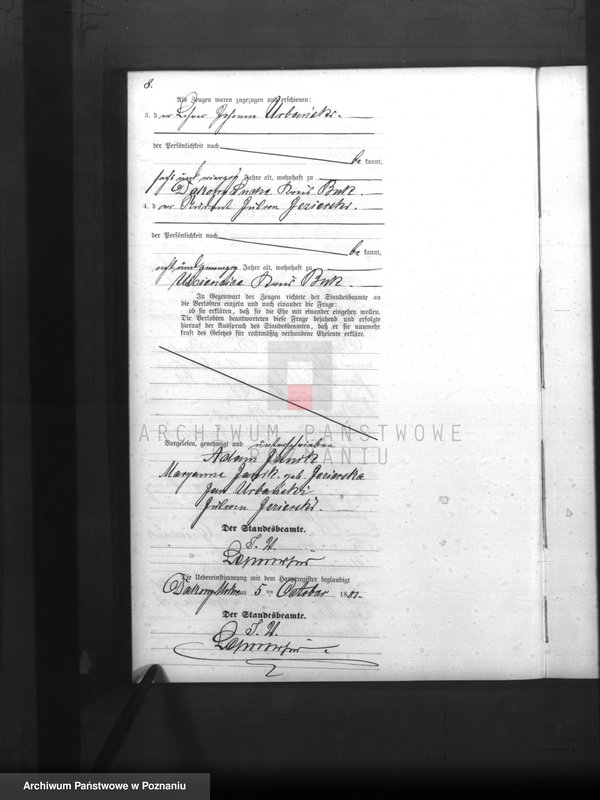 8.
Als Zeugen waren zugezogen und erschienen:
3. der Lehrer Johann Urbański.
der Persönlichkeit nach
be kannt,
sechs und vierzig Jahre alt, wohnhaft zu
Dakowy Kreis Buk.
4. der
der Persönlichkeit nach
be kannt,
acht und zwanzig Jahre alt, wohnhaft zu
Kreis Buk.
In Gegenwart der Zeugen richtete der Standesbeamte an
die Verlobten einzeln und nach einander die Frage:
ob sie erklären, daß sie die Ehe mit einander eingehen wollen.
Die Verlobten beantworteten diese Frage bejahend und erfolgte
hierauf der Ausspruch des Standesbeamten, daß er sie nunmehr
kraft des Gesetzes für rechtmäßig verbundene Eheleute erkläre.
ARCHIWUM PAŃSTWOWE
W POZNANIU
Vorgelesen, genehmigt und unterschrieben
Adam
Maryanna geb. Jezierska
Jan Urbański
Jezierski.
Der Standesbeamte.
Die Uebereinstimmung mit dem Hauptregister beglaubigt
Dakowy Mokre am 5 ten October 1881.
Der Standesbeamte.
Archiwum Państwowe w Poznaniu